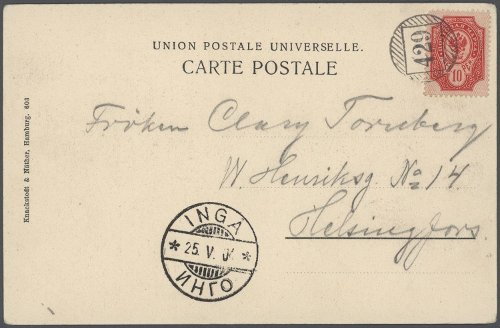 UNION POSTALE UNIVERSELLE.
CARTE POSTALE
429
10
Fröken Clary Torckberg
W. Henriksg No 14
Helsingfors.
INGÅ
* 25. V. 0 *
ИНГО
Knackstedt & Näther, Hamburg. 603